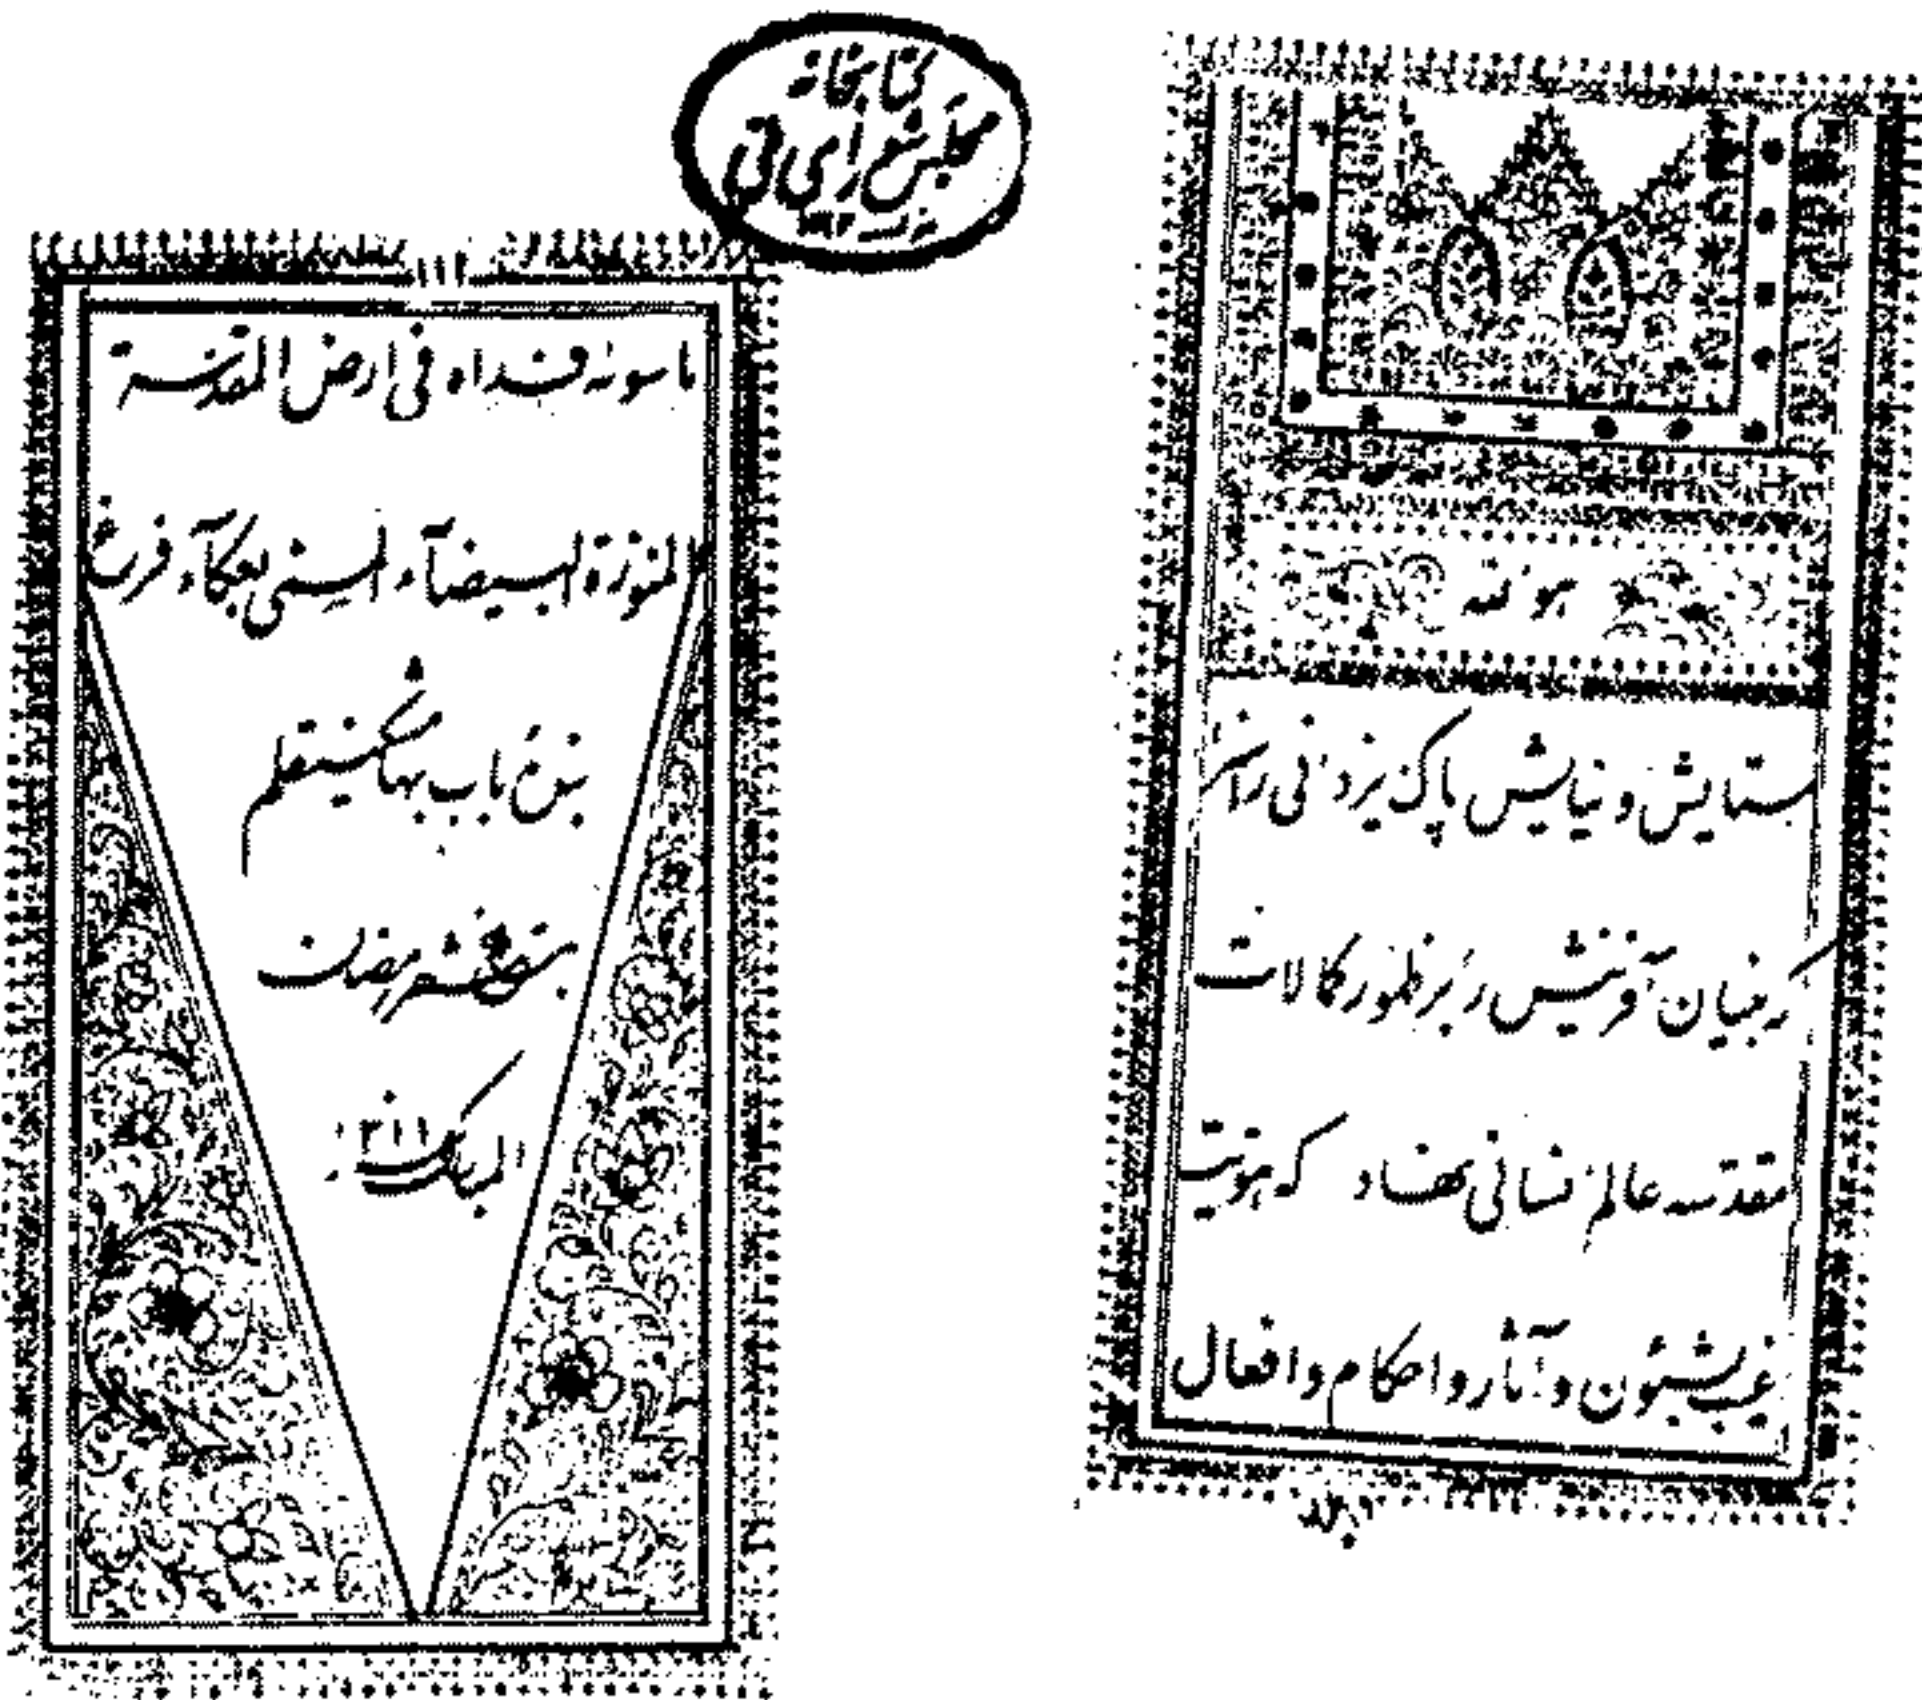 هو الله
ستایش و نیایش پاک یزدانی را سزا
که بنیان آفرینش را بر ظهور کمالات
مقدسه عالم انسانی نهاد که هویت
غیب بشئون و آثار و احکام و افعال
کتابخانه
مجلس شورای ملی
ما سواه فداه فی ارض المقدسة
المنورة البیضآء المسمی بعکآء فرغ
باب بهآء
شهر رمضان
المبارک ۱۳۱۱